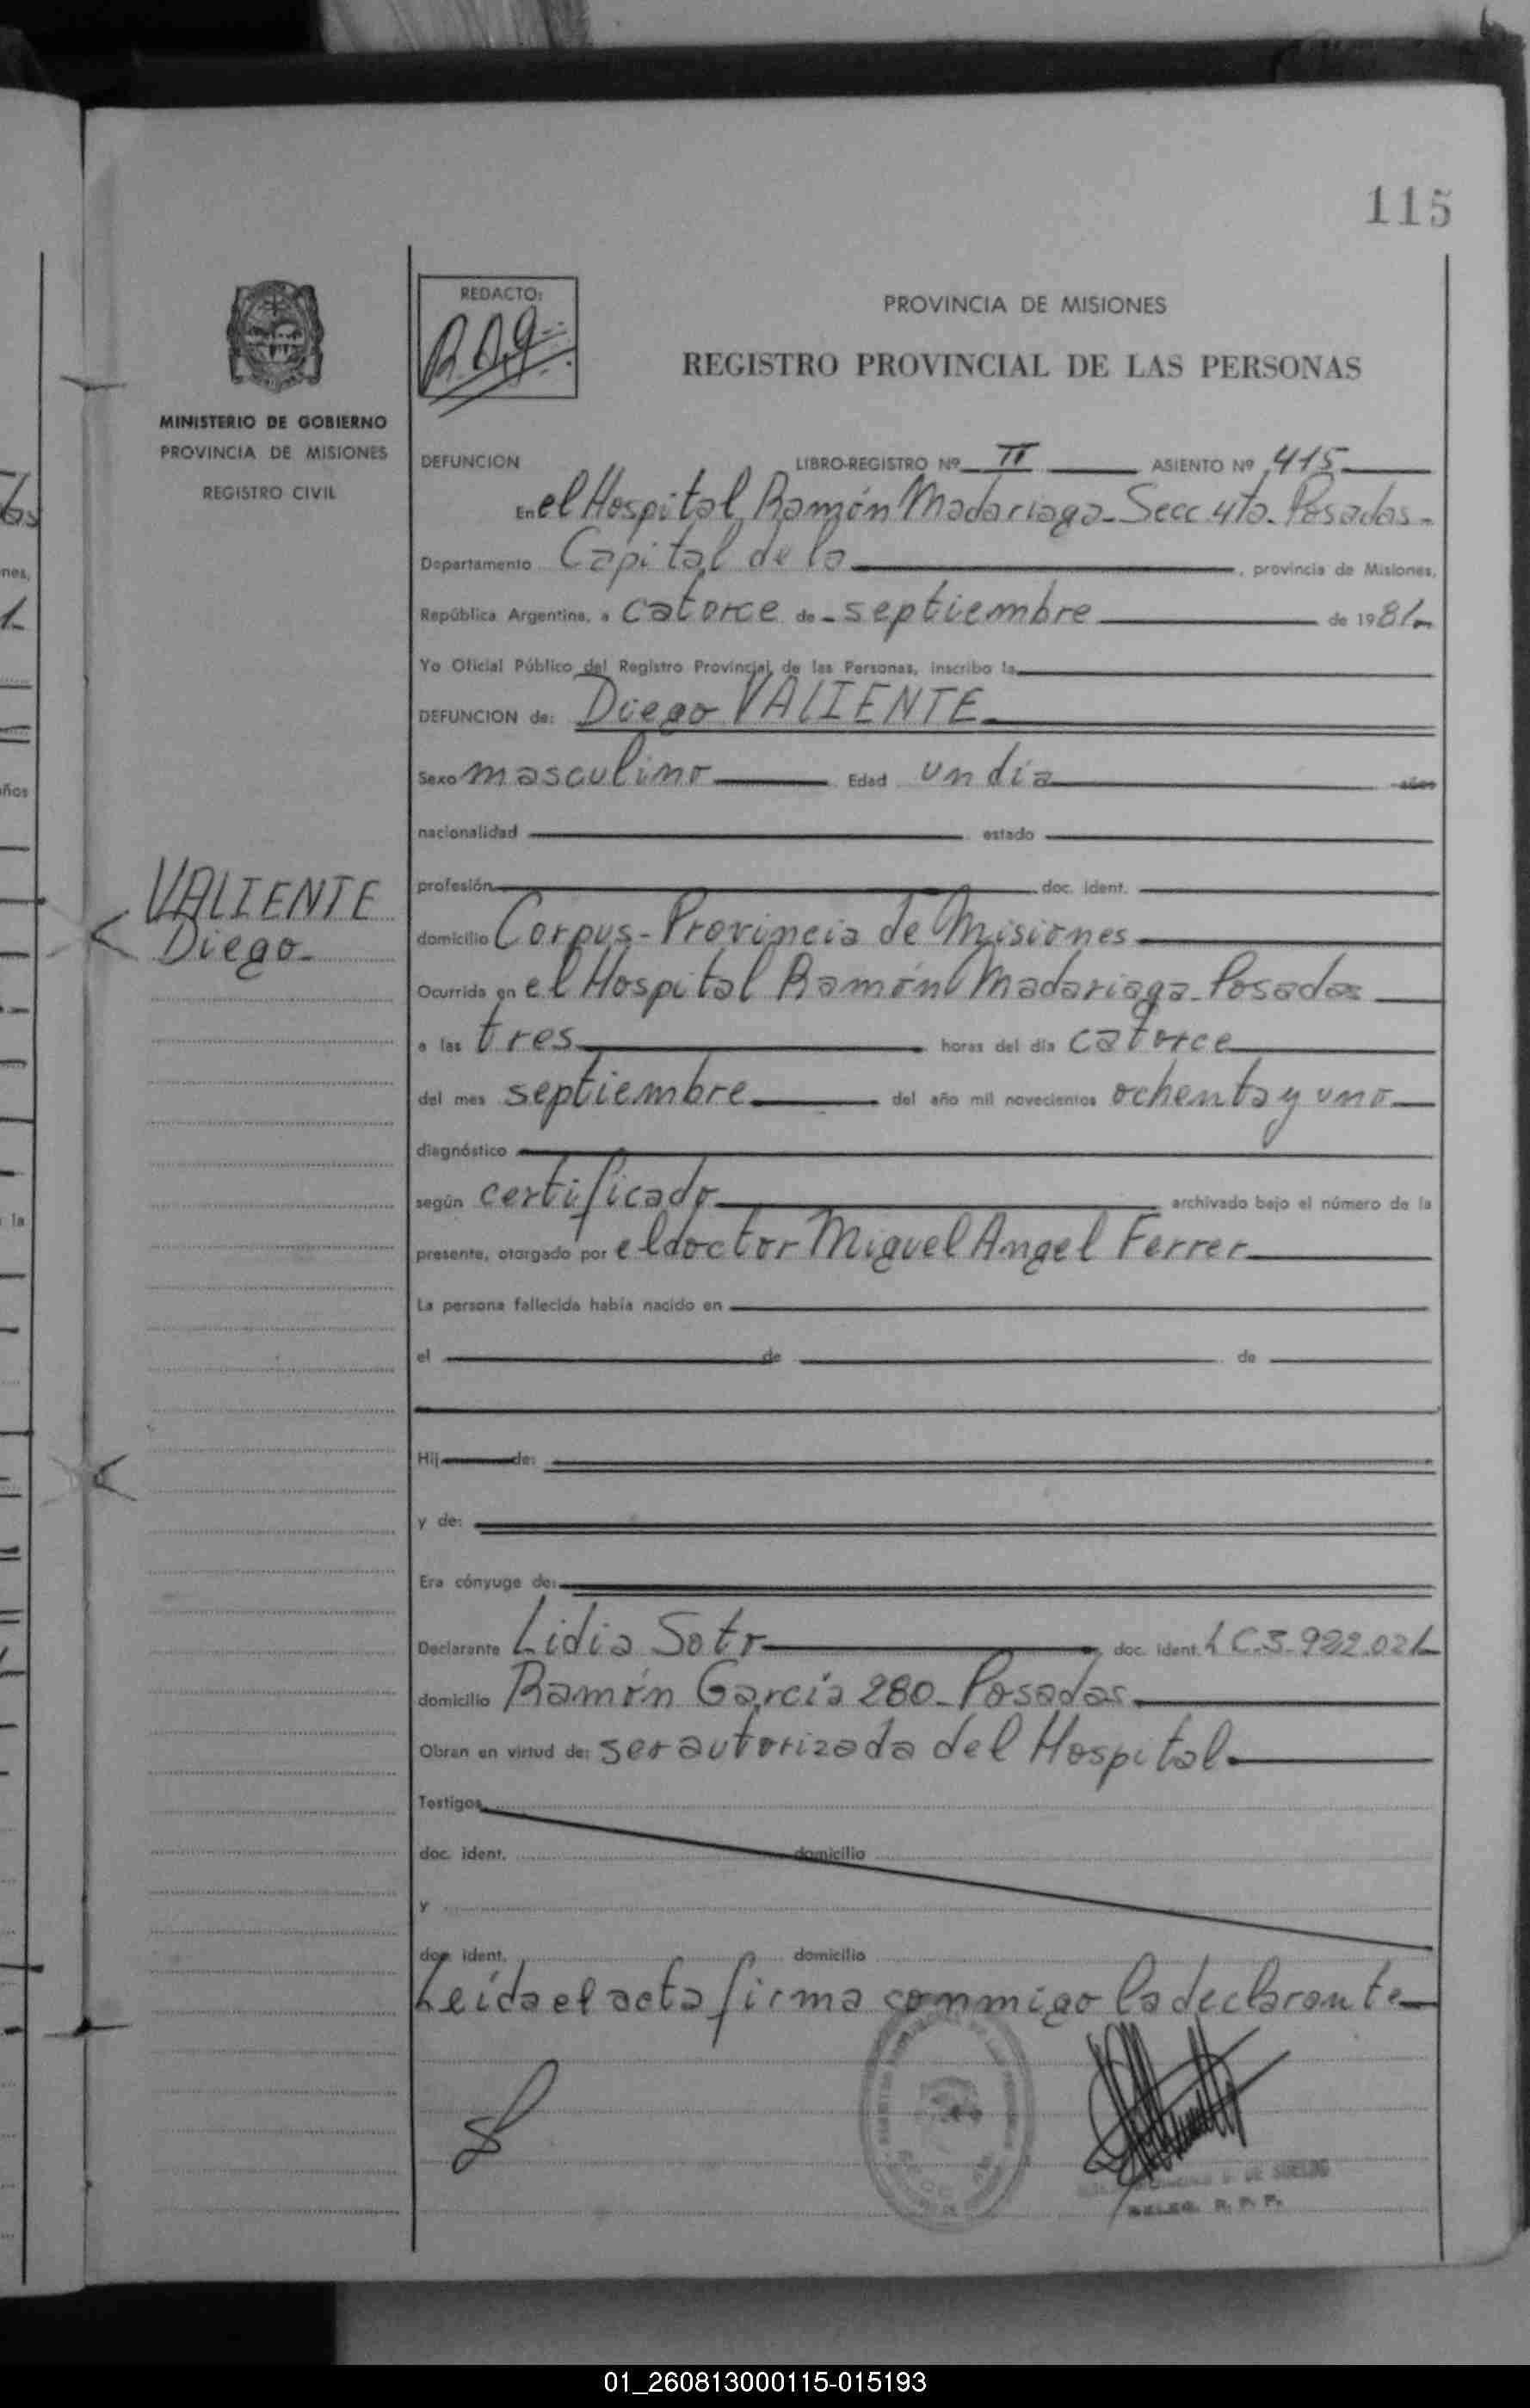 115
REDACTO:
PROVINCIA DE MISIONES
REGISTRO PROVINCIAL DE LAS PERSONAS
MINISTERIO DE GOBIERNO
PROVINCIA DE MISIONES
REGISTRO CIVIL
DEFUNCION LIBRO-REGISTRO Nº II ASIENTO Nº 415
En el Hospital Ramón Madariaga - Secc 4ta. Posadas -
Departamento Capital de la, provincia de Misiones,
República Argentina, a catorce de - septiembre de 1981 -
Yo Oficial Público del Registro Provincial de las Personas, inscribo la
DEFUNCION de: Diego VALIENTE
Sexo masculino Edad un día años
nacionalidad estado
profesión doc. ident.
VALIENTE
Diego -
domicilio Corpus - Provincia de Misiones
Ocurrida en el Hospital Ramón Madariaga - Posadas
a las tres horas del día catorce
del mes septiembre del año mil novecientos ochenta y uno
diagnóstico
según certificado archivado bajo el número de la
presente, otorgado por el doctor Miguel Angel Ferrer
La persona fallecida había nacido en
el de de
Hij de:
y de:
Era cónyuge de:
Declarante Lidia Soto doc. ident. L C. 3.922.021
domicilio Ramón García 280 - Posadas
Obran en virtud de: ser autorizada del Hospital
Testigos
doc. ident. domicilio
y
doc. ident. domicilio
Leída el acta firma conmmigo la declarante
DE SUELDO
DELEG. R. P. P.
nes,
ños
la
01_260813000115-015193